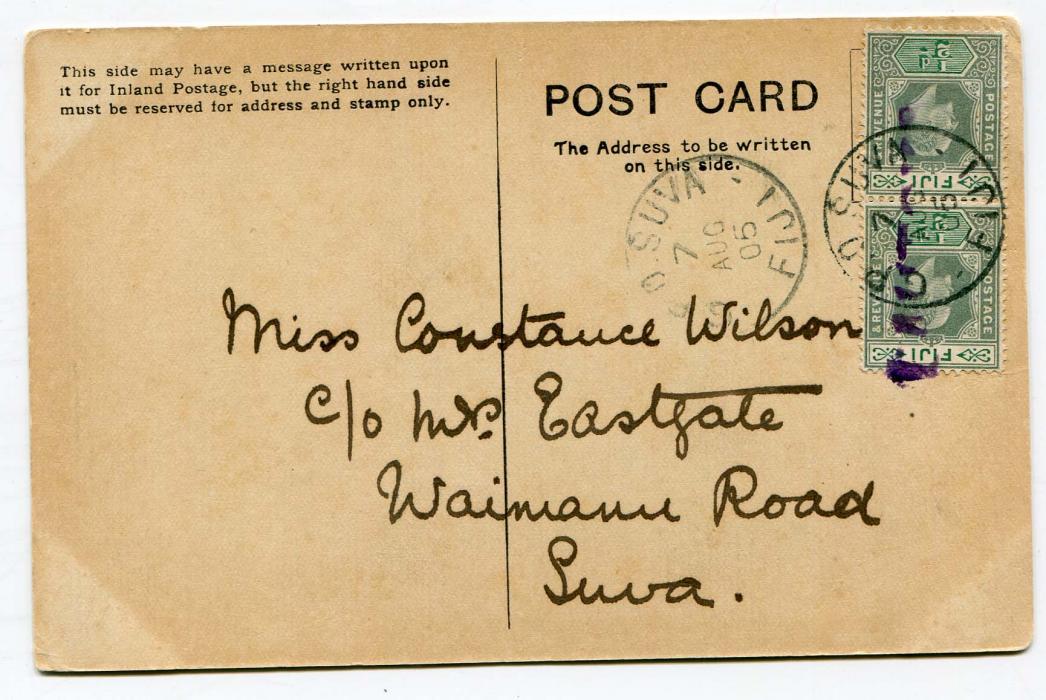 This side may have a message written upon
it for Inland Postage, but the right hand side
must be reserved for address and stamp only.
POST CARD
The Address to be written
on this side.
½d
REVENUE POSTAGE
FIJI
½d
& REVENUE POSTAGE
FIJI
G.P.O. SUVA - FIJI
7
AUG
05
G.P.O. SUVA - FIJI
7
Miss Constance Wilson
c/o Mrs. Eastgate
Waimanu Road
Suva.